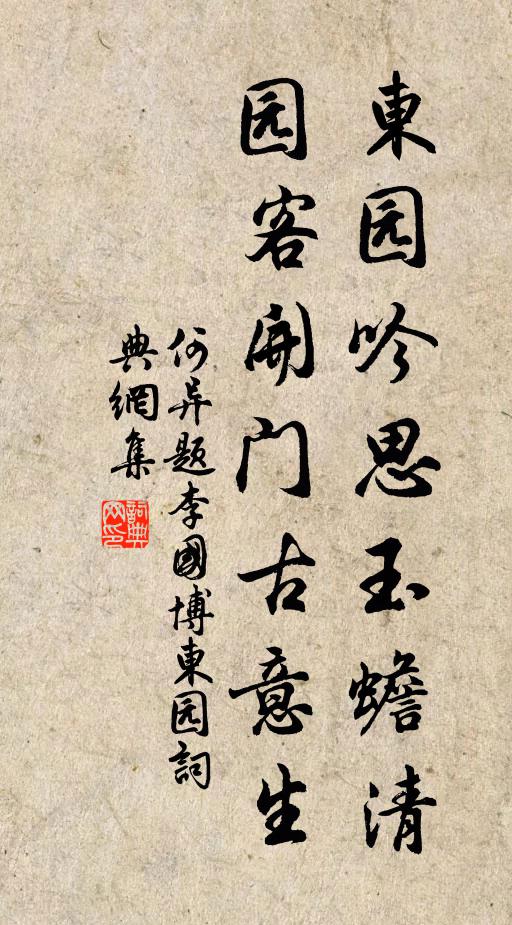 東园吟思玉蟾清
园客開門古意生
何异题李國博東园詞
典網集
詞典网印